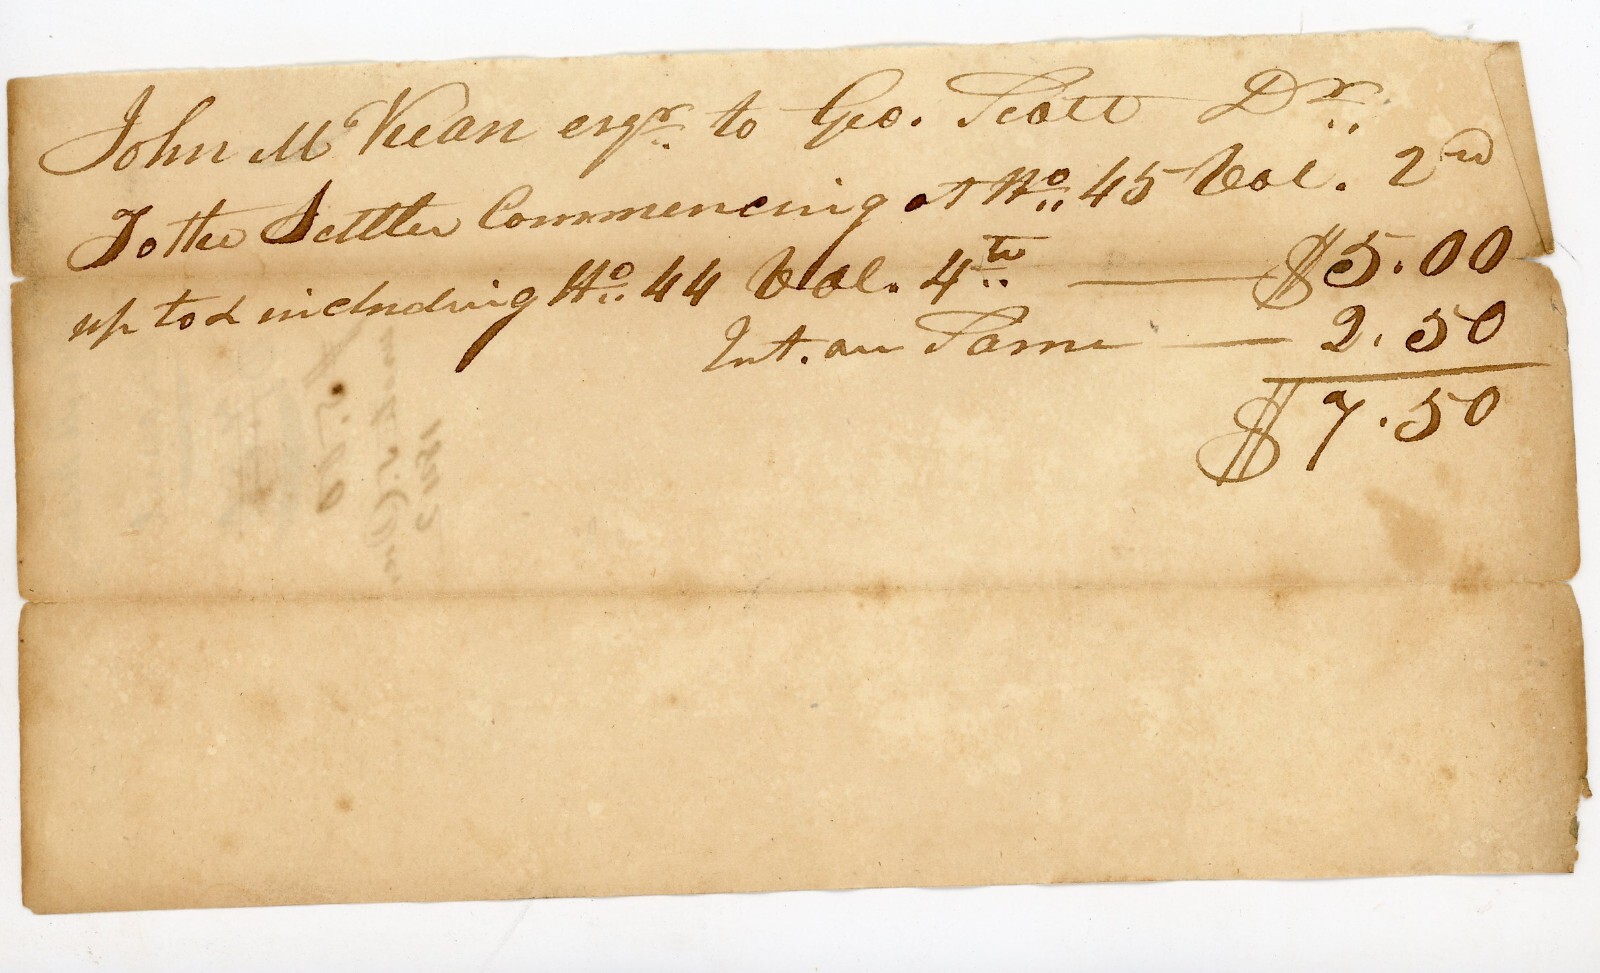 John McKean esqr. to Geo. Scott Dr.
To the Settler Commencing at No. 45 Vol. 2nd
up to & including No. 44 Vol. 4th — $5.00
Int. on Same — 2.50
$7.50